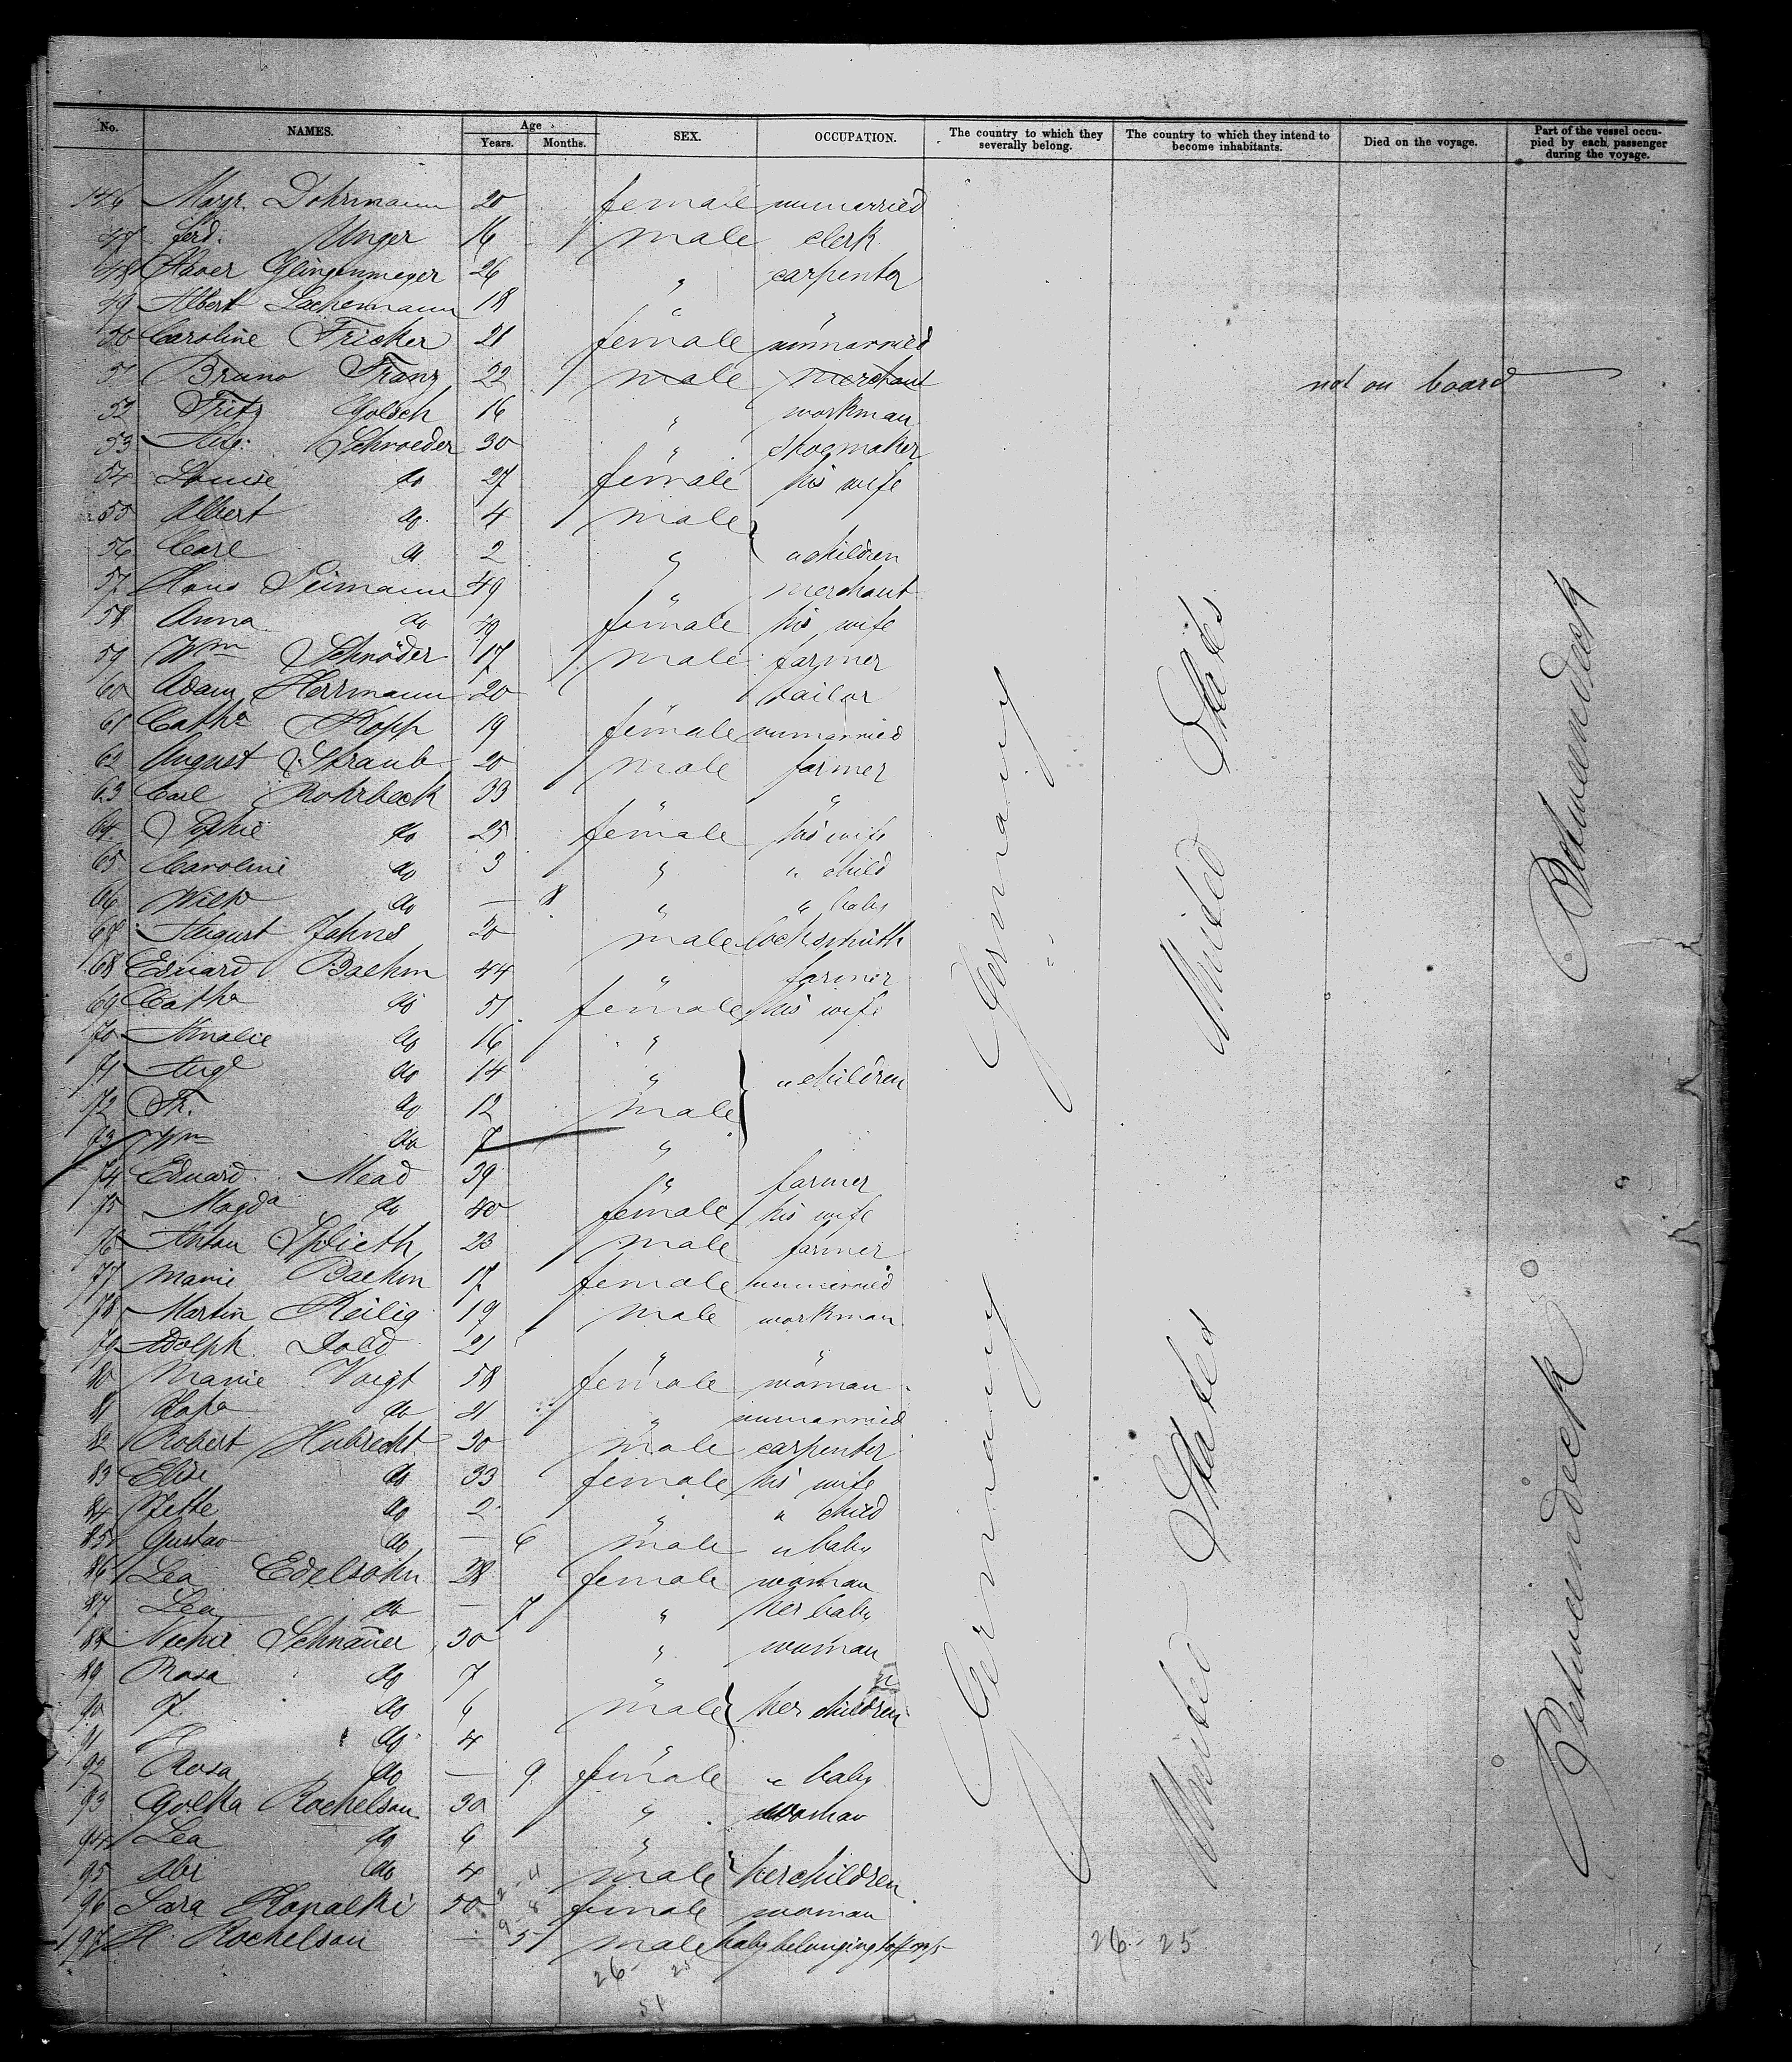 No. NAMES. Age Years. Months. SEX. OCCUPATION. The country to which they severally belong. The country to which they intend to become inhabitants. Died on the voyage. Part of the vessel occupied by each passenger during the voyage.
146 Margr. Dohrmann 20 female unmarried
47 Ferd. Unger 16 male clerk
48 Xaver Glingenmeyer 26 " carpenter
49 Albert Lachenmann 18 " "
50 Caroline Fricker 21 female unmarried
51 Bruno Franz 22 male merchant not on board
52 Fritz Golsch 16 " workman
53 Aug. Schroeder 30 " shoemaker
54 Louise do 27 female his wife
55 Albert do 4 male
56 Carl do 2 " " children
57 Hans Peimann 49 " merchant
58 Anna do 49 female his wife
59 Wm Schröder 17 male farmer
60 Adam Herrmann 20 tailor
61 Catha Kopp 19 female unmarried
62 August Straub 20 male farmer
63 Carl Rohrbeck 33 " "
64 Sophie do 25 female his wife
65 Caroline do 3 " " child
66 do — 8 " " baby
67 August Jahns 20 male locksmith
68 Eduard Baehm 44 " farmer
69 Cathe do 51 female his wife
70 Amalie do 16 "
71 Aug do 14 " " children
72 Fr. do 12 male
73 Wm do 7 "
74 Eduard Mead 39 " farmer
75 Magda do 40 female his wife
76 Anton Splieth 23 male farmer
77 Marie Baehm 17 female unmarried
78 Martin Heilig 19 male workman
79 Adolph Dold 21 " "
80 Marie Voigt 58 female woman
81 do 21 " unmarried
82 Robert Hubrecht 30 male carpenter
83 Elise do 33 female his wife
84 Nette do 2 " " child
85 Gustav do — 6 male " baby
86 Lea Edelsohn 28 female woman
87 Lea do — 7 " her baby
88 Schnauer 30 " woman
89 Rosa do 7 "
90 do 6 male her children
91 do 4 "
92 Rosa do — 9 female " baby
93 Golka Rochelson 30 " woman
94 Lea do 6 "
95 Abr do 4 male her children
96 Sara Kopalki 50 female woman
197 H. Rochelson — 5 male baby belonging to
Germany
United States
Betweendeck
Germany
United States
Betweendeck
26 - 25
26 - 25
51